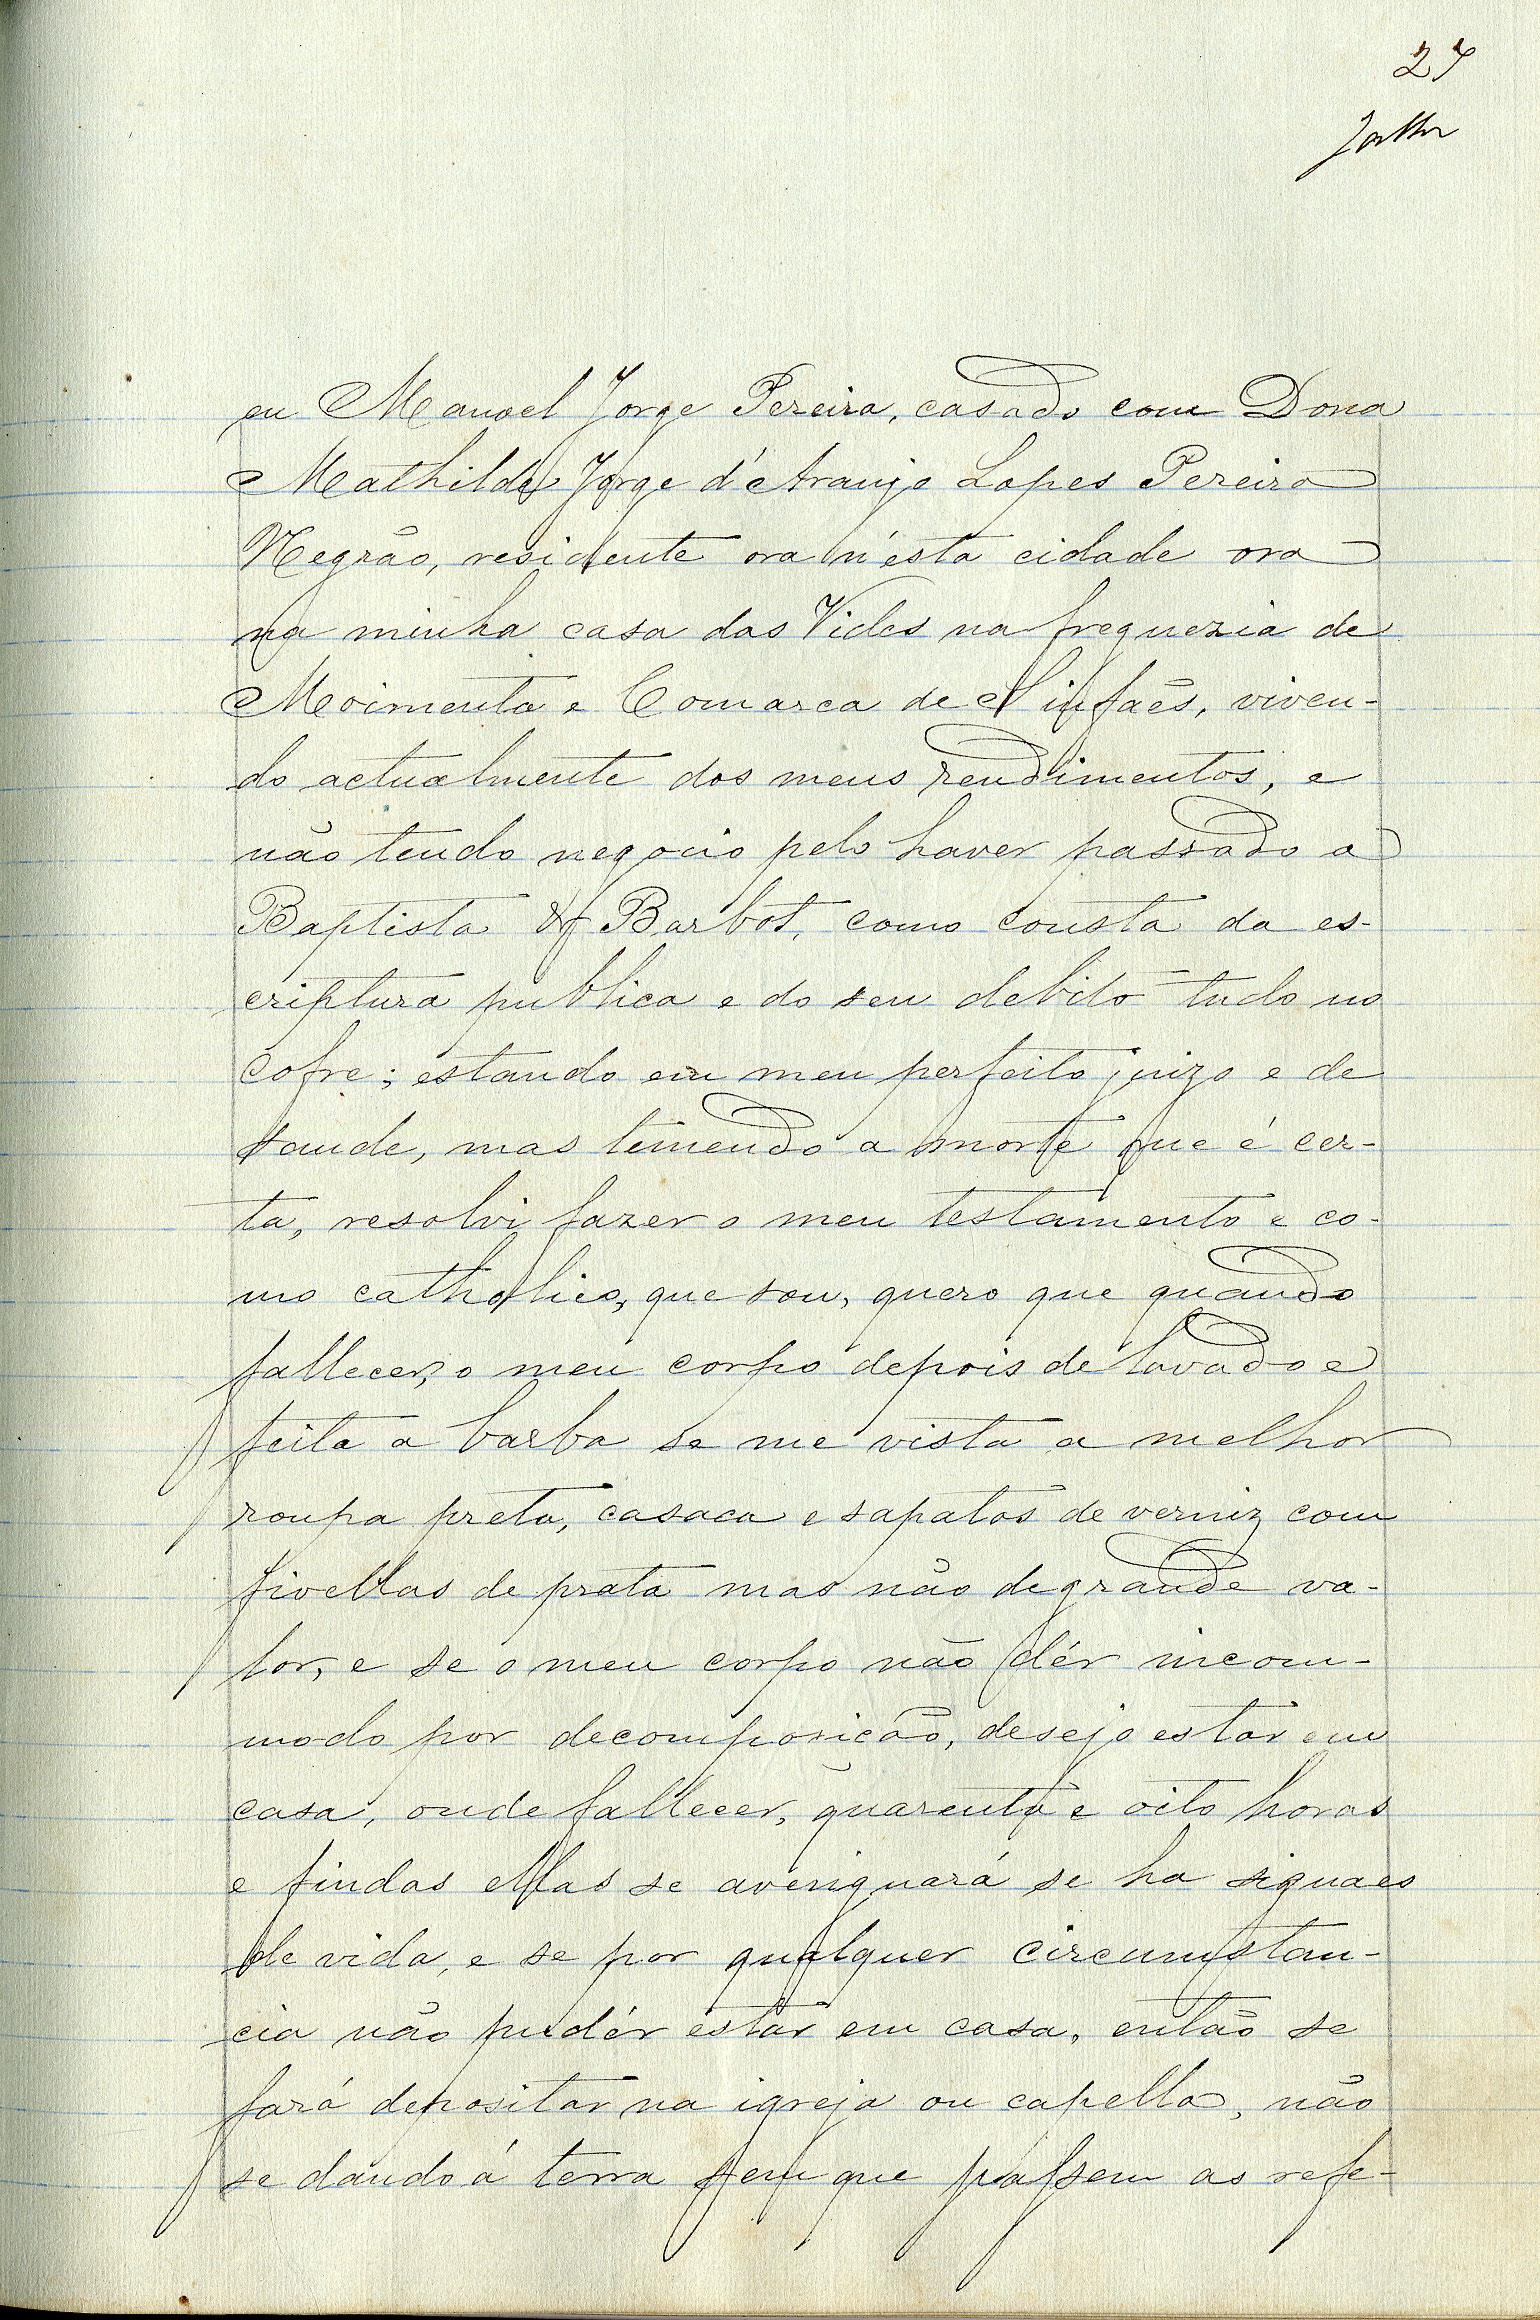 27
eu Manoel Jorge Pereira, casado com Dona
Mathilde Jorge d'Araujo Lopes Pereira
Negrão, residente ora n'esta cidade ora
na minha casa das Vides na freguezia de
Moimenta e Comarca de Sinfaẽs, viven-
do actualmente dos meus rendimentos, e
não tendo negocio pelo haver passado a
Baptista & Barbot, como consta da es-
criptura publica e do seu debito tudo no
cofre; estando em meu perfeito juizo e de
saude, mas temendo a morte que é cer-
ta, resolvi fazer o meu testamento e co-
mo catholico, que sou, quero que quando
fallecer, o meu corpo depois de lavado e
feita a barba se me vista a melhor
roupa preta, casaca e sapatos de verniz com
fivellas de prata mas não de grande va-
lor, e se o meu corpo não dér incom-
modo por decomposição, desejo estar em
casa, onde fallecer, quarenta e oito horas
e findas ellas se averiguará se ha signaes
de vida, e se por qualquer circumstan-
cia não pudér estar em casa, então se
fará depositar na igreja ou capella, não
se dando á terra sem que passem as refe-